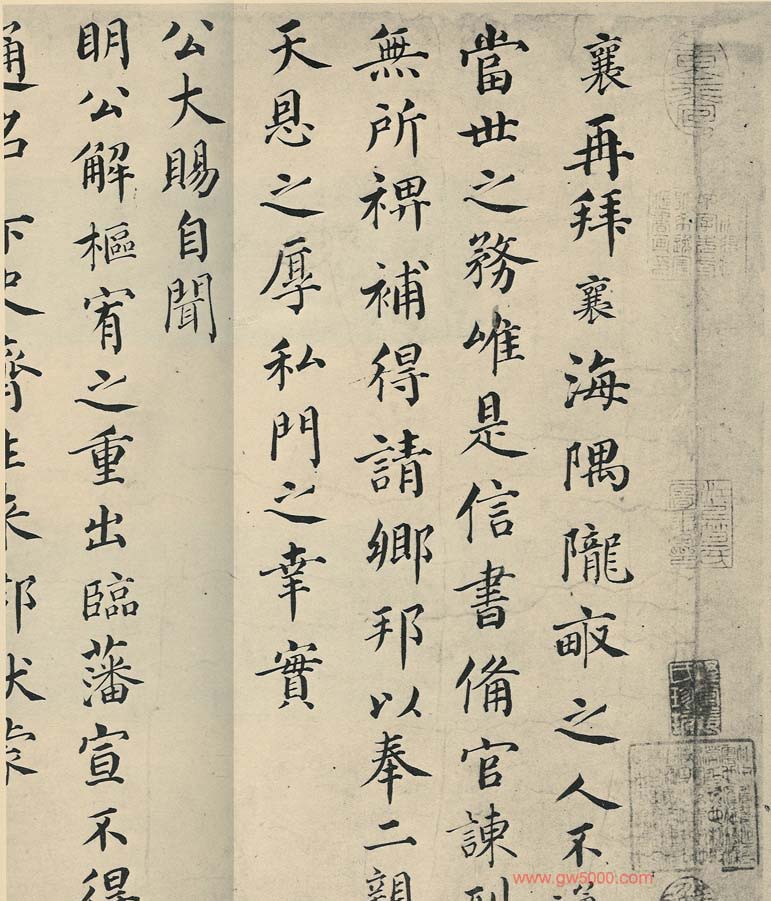 襄再拜襄海隅隴畝之人不
當世之務唯是信書備官諫列
無所裨補得請鄉邦以奉二親
天恩之厚私門之幸實
公大賜自聞
明公解樞宥之重出臨藩宣不得
通名下吏齊
www.gw5000.com